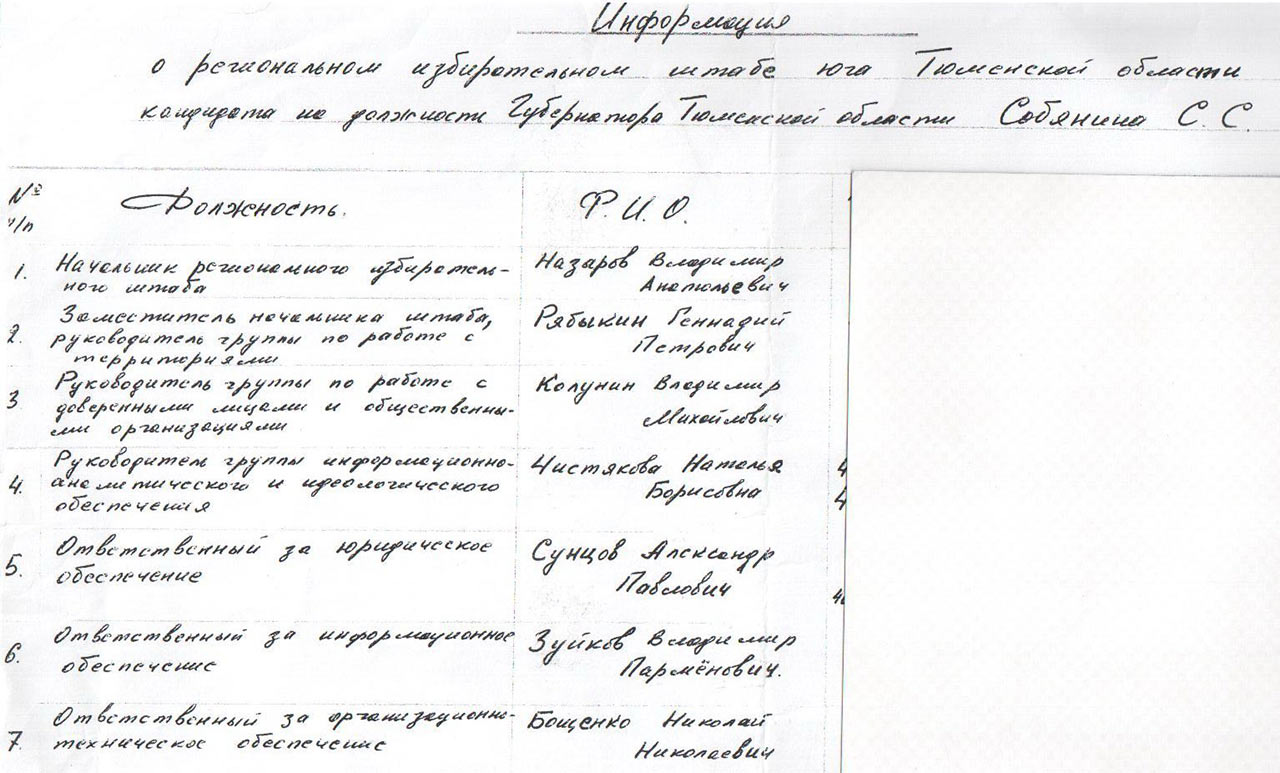 Информация
о региональном избирательном штабе юга Тюменской области
кандидата на должность Губернатора Тюменской области Собянина С. С.
№ п/п
Должность.
Ф. И. О.
1.
Начальник регионального избиратель-
ного штаба
Назаров Владимир
Анатольевич
2.
Заместитель начальника штаба,
руководитель группы по работе с
территориями
Рябыкин Геннадий
Петрович
3
Руководитель группы по работе с
доверенными лицами и общественны-
ми организациями
Колунин Владимир
Михайлович
4.
Руководитель группы информационно-
аналитического и идеологического
обеспечения
Чистякова Наталья
Борисовна
4
4
5.
Ответственный за юридическое
обеспечение
Сунцов Александр
Павлович
6.
Ответственный за информационное
обеспечение
Зуйков Владимир
Парменович.
7.
Ответственный за организационно-
техническое обеспечение
Бощенко Николай
Николаевич